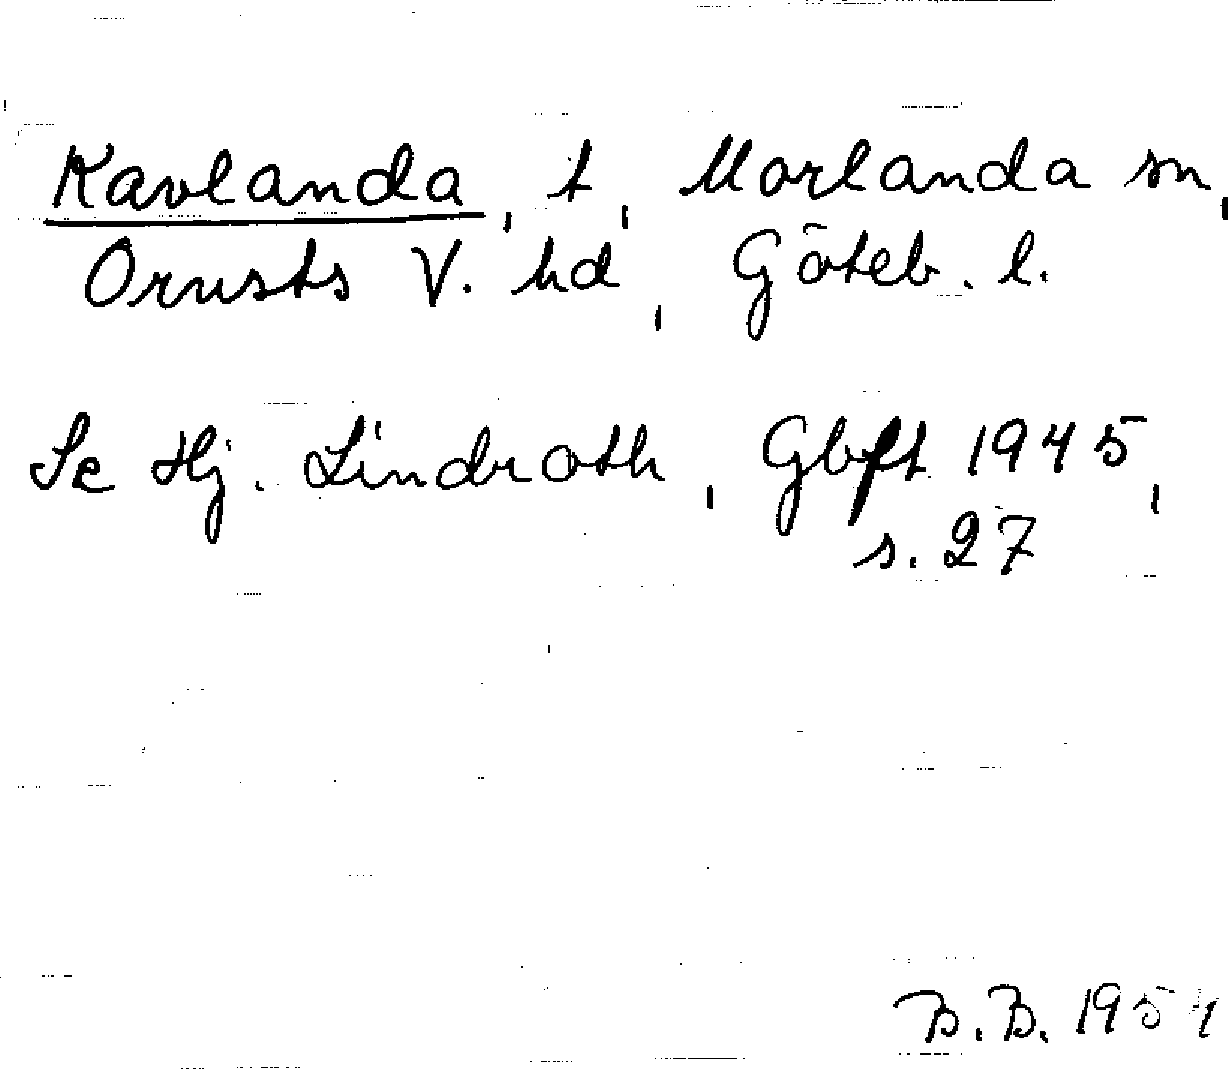 Kavlanda, t, Morlanda sn,
Orusts V. hd, Göteb. l.
Se Hj. Lindroth, Gbft 1945,
s. 27
B.B. 1954